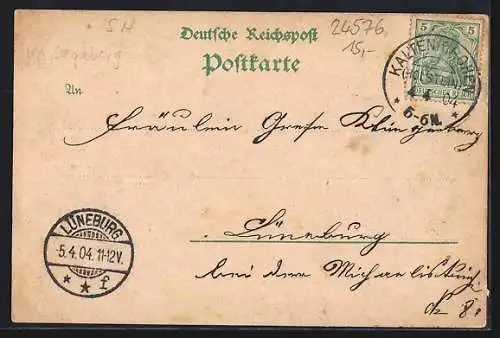 SH
24576
15,-
Deutsche Reichspost
Postkarte
5 5
KALTENKIRCHEN
(HOLSTEIN)
4. 04
5-6N.
An
Fräulein Grete Klingenberg
LÜNEBURG
5.4.04. 11-12V.
* * f
Lüneburg
bei der Michaeliskirche
№ 8.